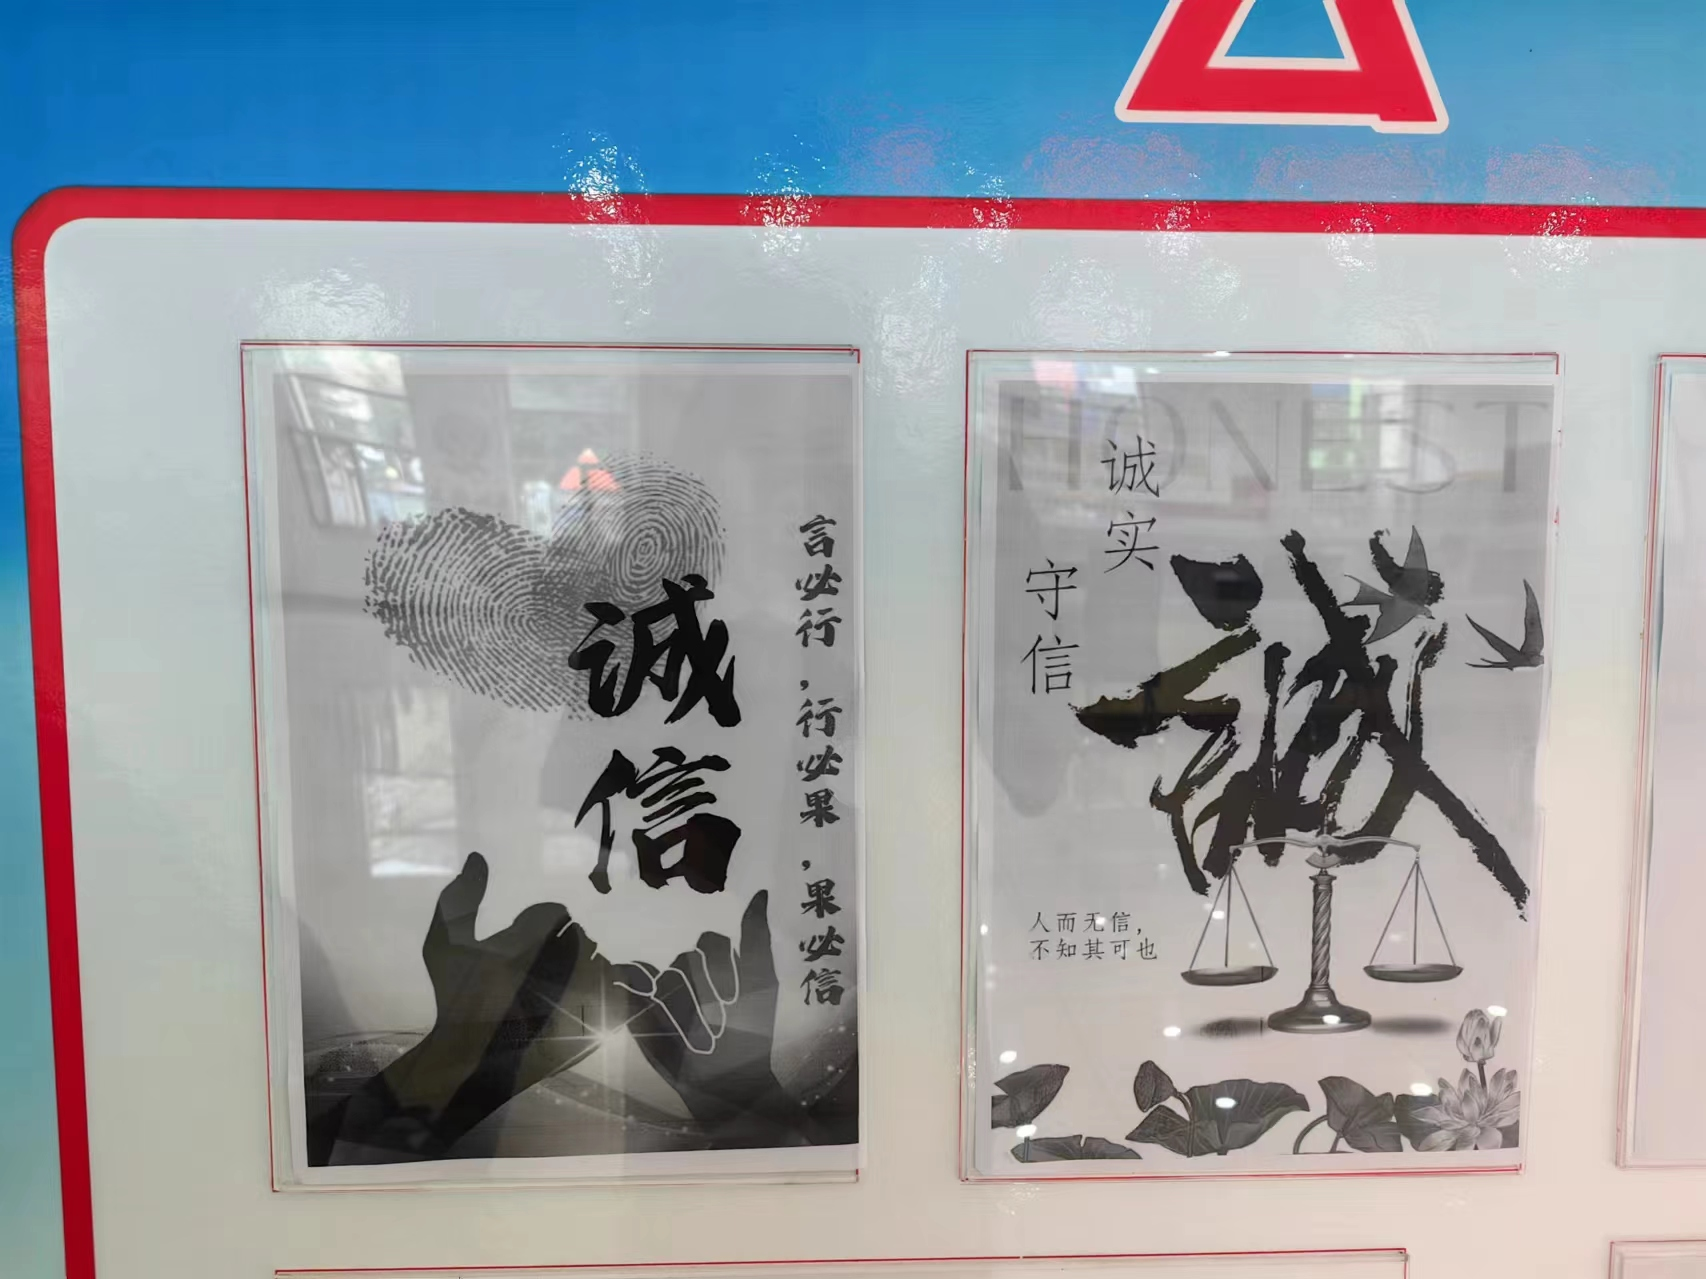 诚信
言必行，行必果，果必信
HONEST
诚实
守信
誠
人而无信，
不知其可也